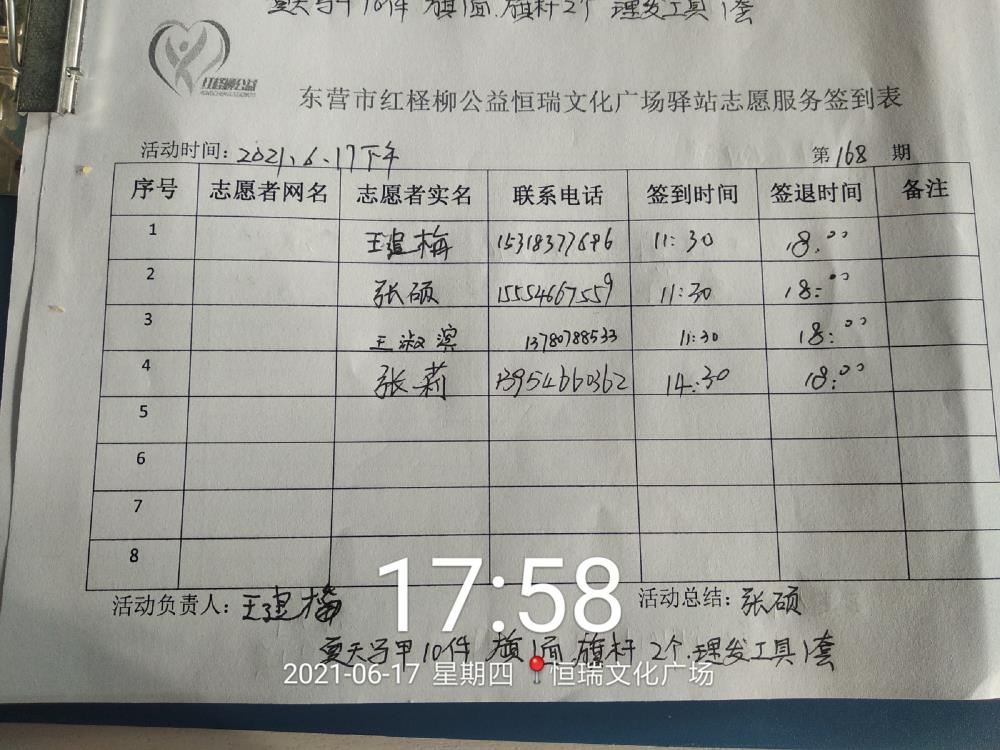 夏天马甲10件 旗1面 旗杆2个 理发工具1套
红柽柳公益
东营市红柽柳公益恒瑞文化广场驿站志愿服务签到表
活动时间：2021.6.17下午 第168期
序号 志愿者网名 志愿者实名 联系电话 签到时间 签退时间 备注
1 王建梅 15318377696 11:30 18:00
2 张硕 15554667559 11:30 18:00
3 王淑滨 13780788533 11:30 18:00
4 张莉 13954660362 14:30 18:00
5
6
7
8
活动负责人：王建梅 活动总结：张硕
17:58
夏天马甲10件 旗1面 旗杆2个.理发工具1套
2021-06-17 星期四 恒瑞文化广场